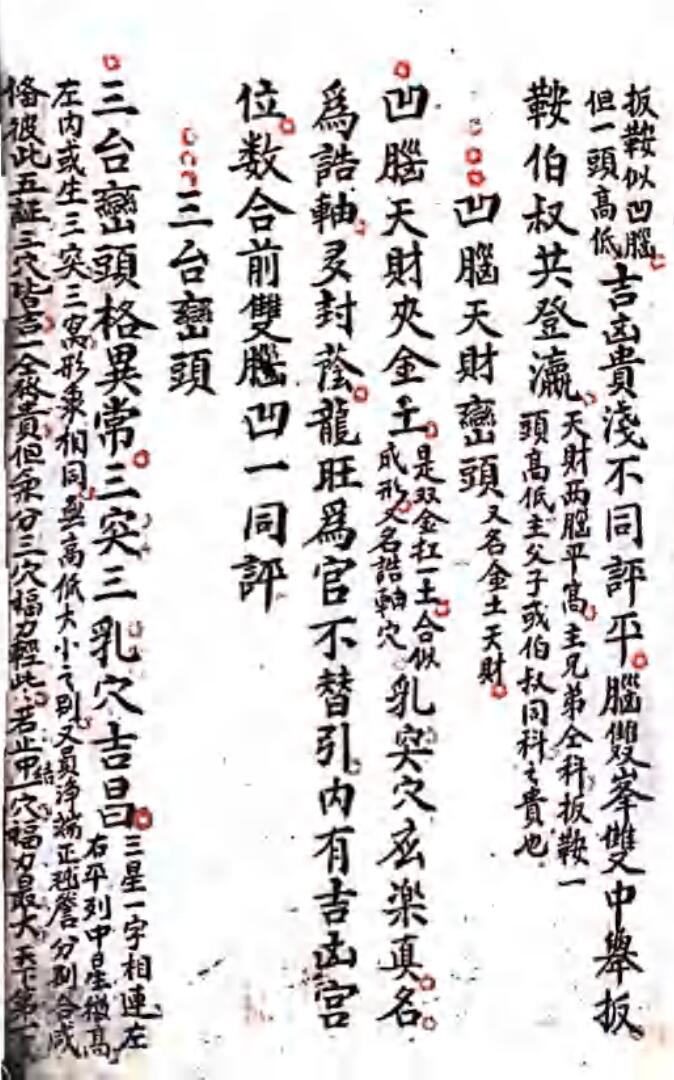 扳鞍似凹腦
但一頭高低
吉凶貴淺不同評平腦雙峯雙中舉扳
鞍伯叔共登瀛
天財兩腦平高主兄弟仝科扳鞍一
頭高低主父子或伯叔同科之貴也
凹腦天財巒頭
又名金土天財
凹腦天財夾金土
是双金扛一土合似
成形又名誥軸穴
乳突穴広楽真名
爲誥軸叐封蔭龍旺爲官不替引内有吉凶宫
位数合前雙腦凹一同評
三台巒頭
三台巒頭格異常三突三乳穴吉昌
三星一字相連左
右平列中星微高
左内或生三突三窩形象相同無高低大小之别又員淨端正 分别合成
俻彼此五証三穴皆吉一仝發貴但 分三穴福力輕些若止甲結一穴福力最大天下第一